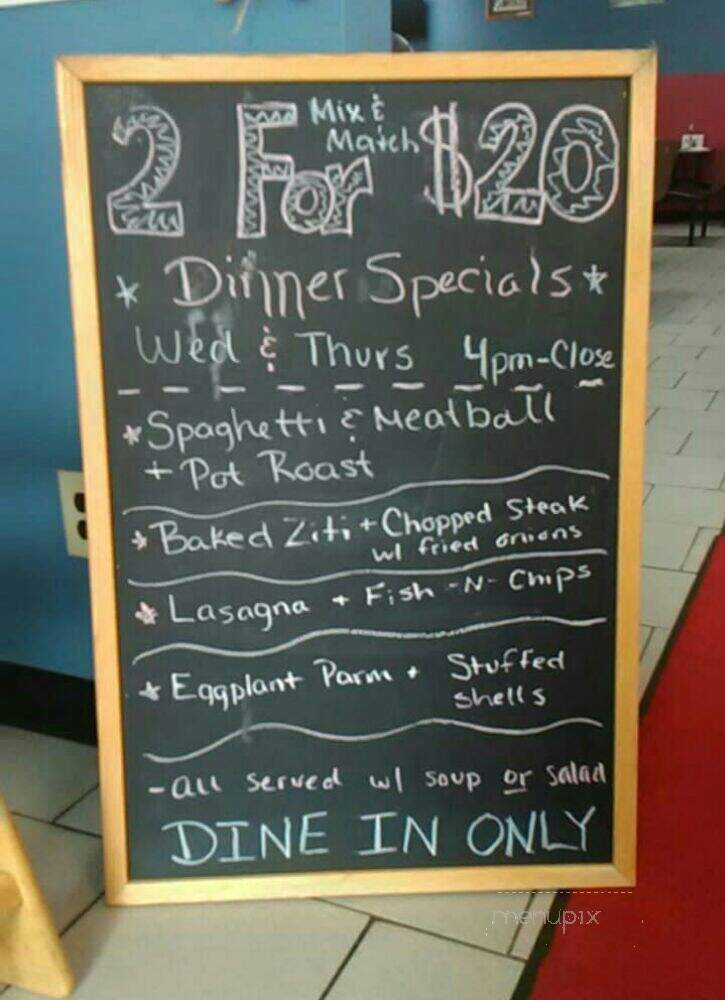 2 For $20
Mix &
Match
* Dinner Specials *
Wed & Thurs 4pm-Close
* Spaghetti & Meatball
+ Pot Roast
* Baked Ziti + Chopped Steak
w/ fried onions
* Lasagna + Fish-N-Chips
* Eggplant Parm + Stuffed
shells
- All served w/ soup or salad
DINE IN ONLY
menupix